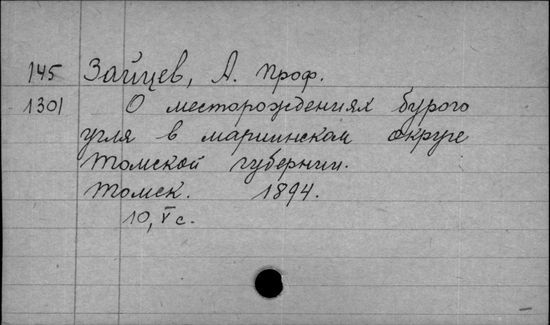 145 Зайцев, А. проф.
1301 О месторождениях бурого
угля в мариинском округе
Томской губернии.
Томск. 1894.
10, V с.